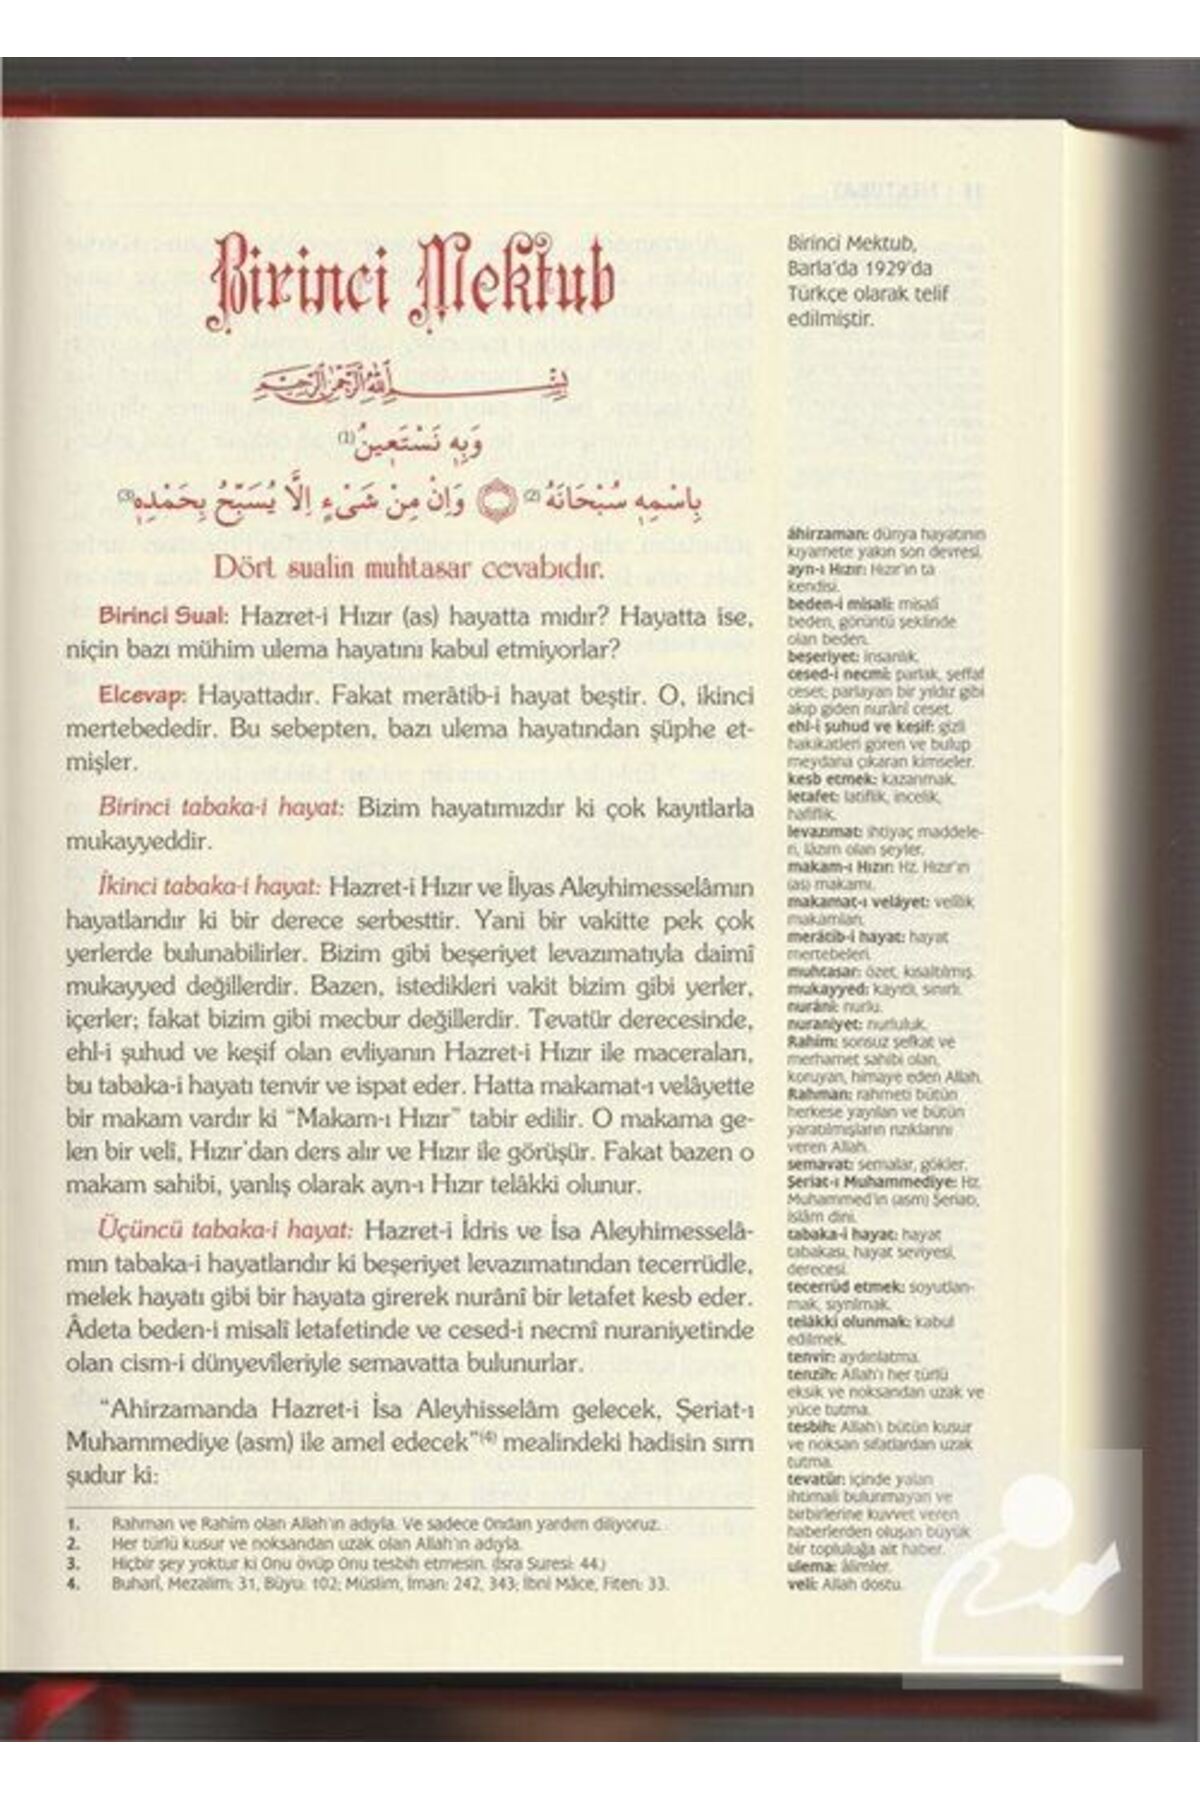 Birinci Mektub
بِسْمِ اللّٰهِ الرَّحْمٰنِ الرَّحِيمِ
وَبِهٖ نَسْتَعِينُ (1)
بِاسْمِهٖ سُبْحَانَهُ (2) وَاِنْ مِنْ شَىْءٍ اِلَّا يُسَبِّحُ بِحَمْدِهٖ (3)
Dört sualin muhtasar cevabıdır.
Birinci Sual: Hazret-i Hızır (as) hayatta mıdır? Hayatta ise,
niçin bazı mühim ulema hayatını kabul etmiyorlar?
Elcevap: Hayattadır. Fakat merâtib-i hayat beştir. O, ikinci
mertebededir. Bu sebepten, bazı ulema hayatından şüphe et-
mişler.
Birinci tabaka-i hayat: Bizim hayatımızdır ki çok kayıtlarla
mukayyeddir.
İkinci tabaka-i hayat: Hazret-i Hızır ve İlyas Aleyhimesselâmın
hayatlarıdır ki bir derece serbesttir. Yani bir vakitte pek çok
yerlerde bulunabilirler. Bizim gibi beşeriyet levazımatıyla daimî
mukayyed değillerdir. Bazen, istedikleri vakit bizim gibi yerler,
içerler; fakat bizim gibi mecbur değillerdir. Tevatür derecesinde,
ehl-i şuhud ve keşif olan evliyanın Hazret-i Hızır ile maceraları,
bu tabaka-i hayatı tenvir ve ispat eder. Hatta makamat-ı velâyette
bir makam vardır ki “Makam-ı Hızır” tabir edilir. O makama ge-
len bir velî, Hızır’dan ders alır ve Hızır ile görüşür. Fakat bazen o
makam sahibi, yanlış olarak ayn-ı Hızır telâkki olunur.
Üçüncü tabaka-i hayat: Hazret-i İdris ve İsa Aleyhimesselâ-
mın tabaka-i hayatlarıdır ki beşeriyet levazımatından tecerrüdle,
melek hayatı gibi bir hayata girerek nurânî bir letafet kesb eder.
Âdeta beden-i misalî letafetinde ve cesed-i necmî nuraniyetinde
olan cism-i dünyevîleriyle semavatta bulunurlar.
“Ahirzamanda Hazret-i İsa Aleyhisselâm gelecek, Şeriat-ı
Muhammediye (asm) ile amel edecek”(4) mealindeki hadisin sırrı
şudur ki:
1. Rahman ve Rahîm olan Allah’ın adıyla. Ve sadece Ondan yardım diliyoruz.
2. Her türlü kusur ve noksandan uzak olan Allah’ın adıyla.
3. Hiçbir şey yoktur ki Onu övüp Onu tesbih etmesin. (İsra Suresi: 44.)
4. Buharî, Mezalim: 31, Büyu: 102; Müslim, İman: 242, 343; İbni Mâce, Fiten: 33.
Birinci Mektub,
Barla’da 1929’da
Türkçe olarak telif
edilmiştir.
âhirzaman: dünya hayatının
kıyamete yakın son devresi.
ayn-ı Hızır: Hızır’ın ta
kendisi.
beden-i misalî: misalî
beden, görüntü şeklinde
olan beden.
beşeriyet: insanlık.
cesed-i necmî: parlak, şeffaf
ceset; parlayan bir yıldız gibi
akıp giden nurânî ceset.
ehl-i şuhud ve keşif: gizli
hakikatleri gören ve bulup
meydana çıkaran kimseler.
kesb etmek: kazanmak.
letafet: latiflik, incelik,
hafiflik.
levazımat: ihtiyaç maddele-
ri, lâzım olan şeyler.
makam-ı Hızır: Hz. Hızır’ın
(as) makamı.
makamat-ı velâyet: velîlik
makamları.
merâtib-i hayat: hayat
mertebeleri.
muhtasar: özet, kısaltılmış.
mukayyed: kayıtlı, sınırlı.
nurânî: nurlu.
nuraniyet: nurluluk.
Rahîm: sonsuz şefkat ve
merhamet sahibi olan,
koruyan, himaye eden Allah.
Rahman: rahmeti bütün
herkese yayılan ve bütün
yaratılmışların rızıklarını
veren Allah.
semavat: semalar, gökler.
Şeriat-ı Muhammediye: Hz.
Muhammed’in (asm) Şeriatı,
İslâm dini.
tabaka-i hayat: hayat
tabakası, hayat seviyesi,
derecesi.
tecerrüd etmek: soyutlan-
mak, sıyrılmak.
telâkki olunmak: kabul
edilmek.
tenvir: aydınlatma.
tenzih: Allah’ı her türlü
eksik ve noksandan uzak ve
yüce tutma.
tesbih: Allah’ı bütün kusur
ve noksan sıfatlardan uzak
tutma.
tevatür: içinde yalan
ihtimali bulunmayan ve
birbirlerine kuvvet veren
haberlerden oluşan büyük
bir topluluğa ait haber.
ulema: âlimler.
velî: Allah dostu.